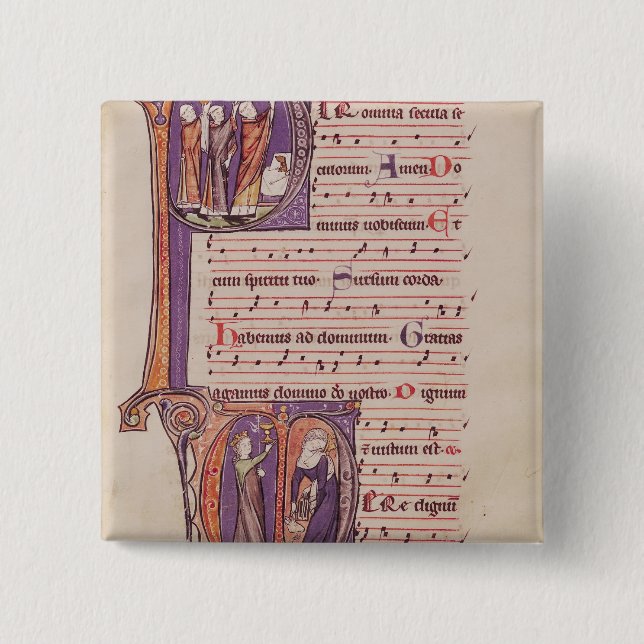 ER omnia secula se
culorum. Amen. Do
minus uobiscum. Et
cum spiritu tuo. Sursum corda.
habemus ad dominum. Gratias
agamus domino deo nostro. Dignum
et iustum est.
ERe dignu